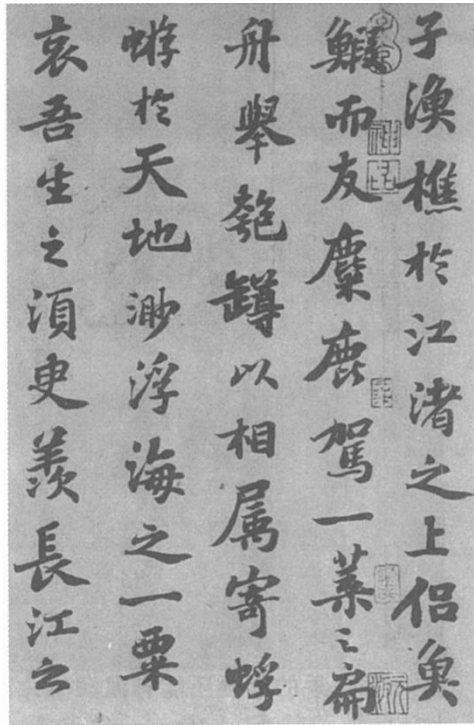 子漁樵於江渚之上侣魚
鰕而友麋鹿駕一葉之扁
舟舉匏罇以相属寄蜉
蝣於天地渺浮海之一粟
哀吾生之須臾羨長江之